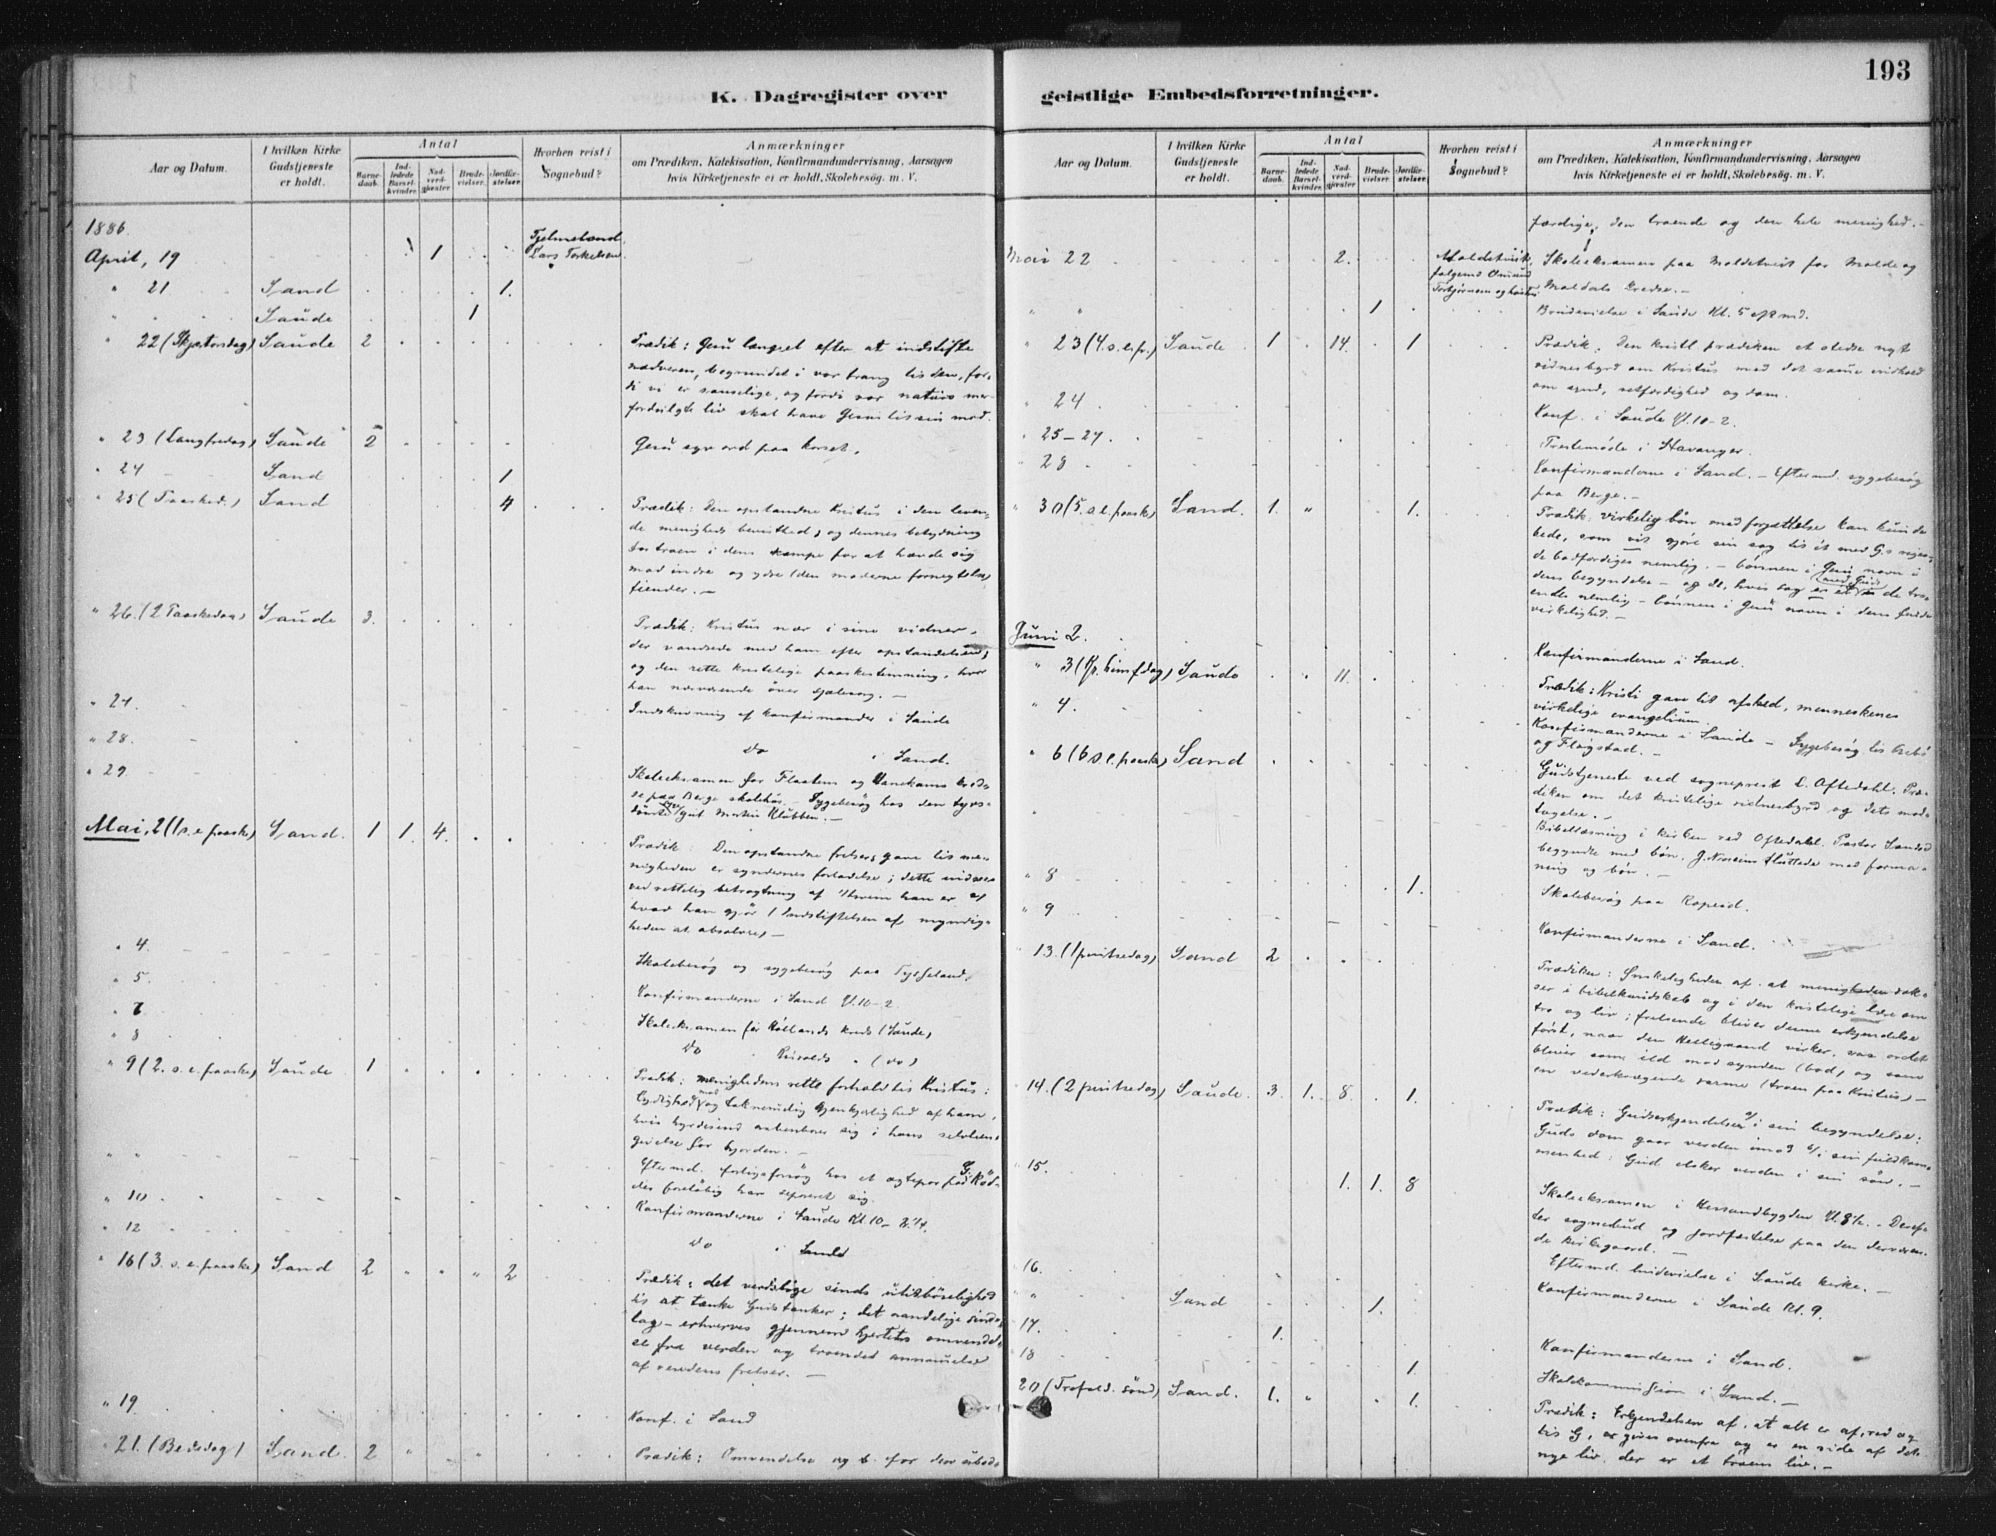 193
K. Dagregister over geistlige Embedsforretninger.
Aar og Datum. I hvilken Kirke Gudstjeneste er holdt. Antal Barnedaab. Indledede Barselkvinder. Nadverdgjester Brudevielser. Jordfæstelser Hvorhen reist i Sognebud? Anmærkninger
om Prædiken, Katekisation, Konfirmandundervisning, Aarsagen
hvis Kirketjeneste ei er holdt, Skolebesög. m. V.
1886.
April, 19 1 Fjelmeland. Lars Torkelsen
" 21 Sand 1.
" " Saude 1
" 22 (Skjærtorsdag) Saude 2 Prædik: Gesu længsel efter at indstifte
nadveren, begrundet i vor trang til den, for-
di vi er sanselige, og fordi vor naturs
liv skal have Gesu
" 23 (Langfredag) Saude 2 Gesu syv ord paa korset.
" 24 Sand 1
" 25 (Paasked.) Sand 4 Prædik: Den opstandne Kristus i den leven-
de menigheds bevisthed, og dennes betydning
for troen i dens kampe for at hævde sig
mod indre og ydre (den moderne fornegtelse)
fiender. —
" 26. (2 Paaskedag) Saude 3. Prædik: Kristus nær i sine vidner,
der vandrede med ham efter opstandelsen,
og den rette kristelige paaskestemning, hvor
han nærværende
" 27. Indskrivning af konfirmander i Saude
" 28. Do i Sand.
" 29. Skoleeksamen for Flaatens og kred-
se paa Berge skolehus. — Sygebesög hos den
gut Martin Klubben. —
Mai, 2 (1 s.e. paaske) Sand. 1 1. 4. Prædik: Den opstandne frelsers gave til me-
nigheden er syndernes forladelse; dette
ved rettelig betragtning af 1/ hvem han er 2/
hvad han gjör 1/ Indstiftelsen af myndig-
heden at absolvere, —
" 4. Skolebesög og sygebesög paa
" 5. Konfirmanderne i Sand Kl. 10-2
" 7 Skoleeksamen for Höllands kreds (Saude)
" 8 Do " (do)
" 9 (2. s.e. paaske) Saude 1 Prædik: menighedens rette forhold til Kristus:
Lydighed mod og taknemlig gjenkjærlighed af ham,
hvis hyrdesind aabenbarer sig i hans selvhen-
givelse for hjorden. —
" " Eftermd. forligsforsög hos et ægtepar paa
der foreløbig har sepreret sig.
" 10 Konfirmanderne i Saude Kl. 10 - 2 1/4.
" 12 Do i Sand
" 16 (3. s.e. paaske) Sand 2 " " " 2 Prædik: det verdslige sinds utilböielighed
til at tænke Guds tanker; det aandelige sinde-
lag — erhverves gjennem hjertets omvendel-
se fra verden og troendes annamelse
af verdens frelser. —
" 19 Konf. i Sand
" 21. (Bededag) Sand. 2 Prædik: Omvendelse og b. for den ubod-
Aar og Datum. I hvilken Kirke Gudstjeneste er holdt. Antal Barnedaab. Indledede Barselkvinder. Nadverdgjester Brudevielser. Jordfæstelser. Hvorhen reist i Sognebud? Anmærkninger
om Prædiken, Katekisation, Konfirmandundervisning, Aarsagen
hvis Kirketjeneste ei er holdt, Skolebesög. m. V.
færdige, den troende og den hele menighed. —
Mai 22 2. Skoleeksamen paa Moldetveit for Molde og
Moldals kredse. —
" " 1 Brudevielse i Saude Kl. 5 efmd.
" 23 (4. s.e.p.) Saude 1 14. 1 Prædik. Den kristl prædiken et stedse nyt
vidnesbyrd om Kristus med det samme indhold
om synd, retfærdighed og dom.
" 24 Konf. i Saude Kl. 10-2.
" 25-27. Prestemöde i Stavanger.
" 28 Konfirmanderne i Sand. — Eftermd. sygebesög
paa Berge. —
" 30 (5. s.e. paask) Sand. 1. " 1. Prædik. virkelig bön med forjættelse kan kun de
bede, som vil gjöre sin sag til ét med G.s
de bodfærdiges nemlig. — bönnen i Gesu navn i
dens begyndelse — og de, hvis sag er ét med Guds de tro-
ende nemlig — bönnen i Gesu navn i dens fulde
virkelighed. —
Juni 2. Konfirmanderne i Sand.
" 3 (Kr. himfdag) Saude 11. Prædik: Kristi gave til afsked, menneskenes
virkelige evangelium.
" 4. Konfirmanderne i Saude — Sygebesög til
og Fløgstad. —
" 6 (6 s.e. paaske) Sand Gudstjeneste ved sogneprest L. Oftedahl. Præ-
diken om det kristelige vidnesbyrd og dets mod-
tagelse. —
Bibellæsning i kirken ved Oftedahl. Pastor
begyndte med bön. sluttede med forma-
ning og bön. —
" 8 1. Skolebesög paa
" 9 Konfirmanderne i Sand.
" 13. (1 pintsedag) Sand 2 Prædiken: Önskeligheden af at menigheden vok-
ser i bibelkundskab og i den kristelige lære om
tro og liv; frelsende bliver denne erkjendelse
först, naar den Helligaand virker, saa ordet
bliver som ild mod synden (bod) og som
en vederkvægende varme (troen paa Kristus) —
" 14. (2 pintsedag) Saude. 3. 1. 8. 1. Prædik: Gudserkjendelsen a/ i sin begyndelse:
Guds dom gaar verden imod b/ i sin fuldkom-
menhed: Gud elsker verden i sin sön. —
" 15. 1. 1. 8 Skoleeksamen i Kl. 8 1/2. — Deref-
ter sognebud og jordfæstelse paa den derværen-
de kirkegaard. —
Eftermd. brudevielse i Saude kirke. —
" 16. Konfirmanderne i Saude Kl. 9.
" " Sand 1.
" 17. 1. Konfirmanderne i Sand.
" 18 1. Skolekommission i Sand. —
20 (Trefold. sönd) Sand. 1. " 1. Prædik: Erkjendelsen af, at alt er af, ved og
til G, er given ovenfra og er en side af det
nye liv, der er et troens liv. —